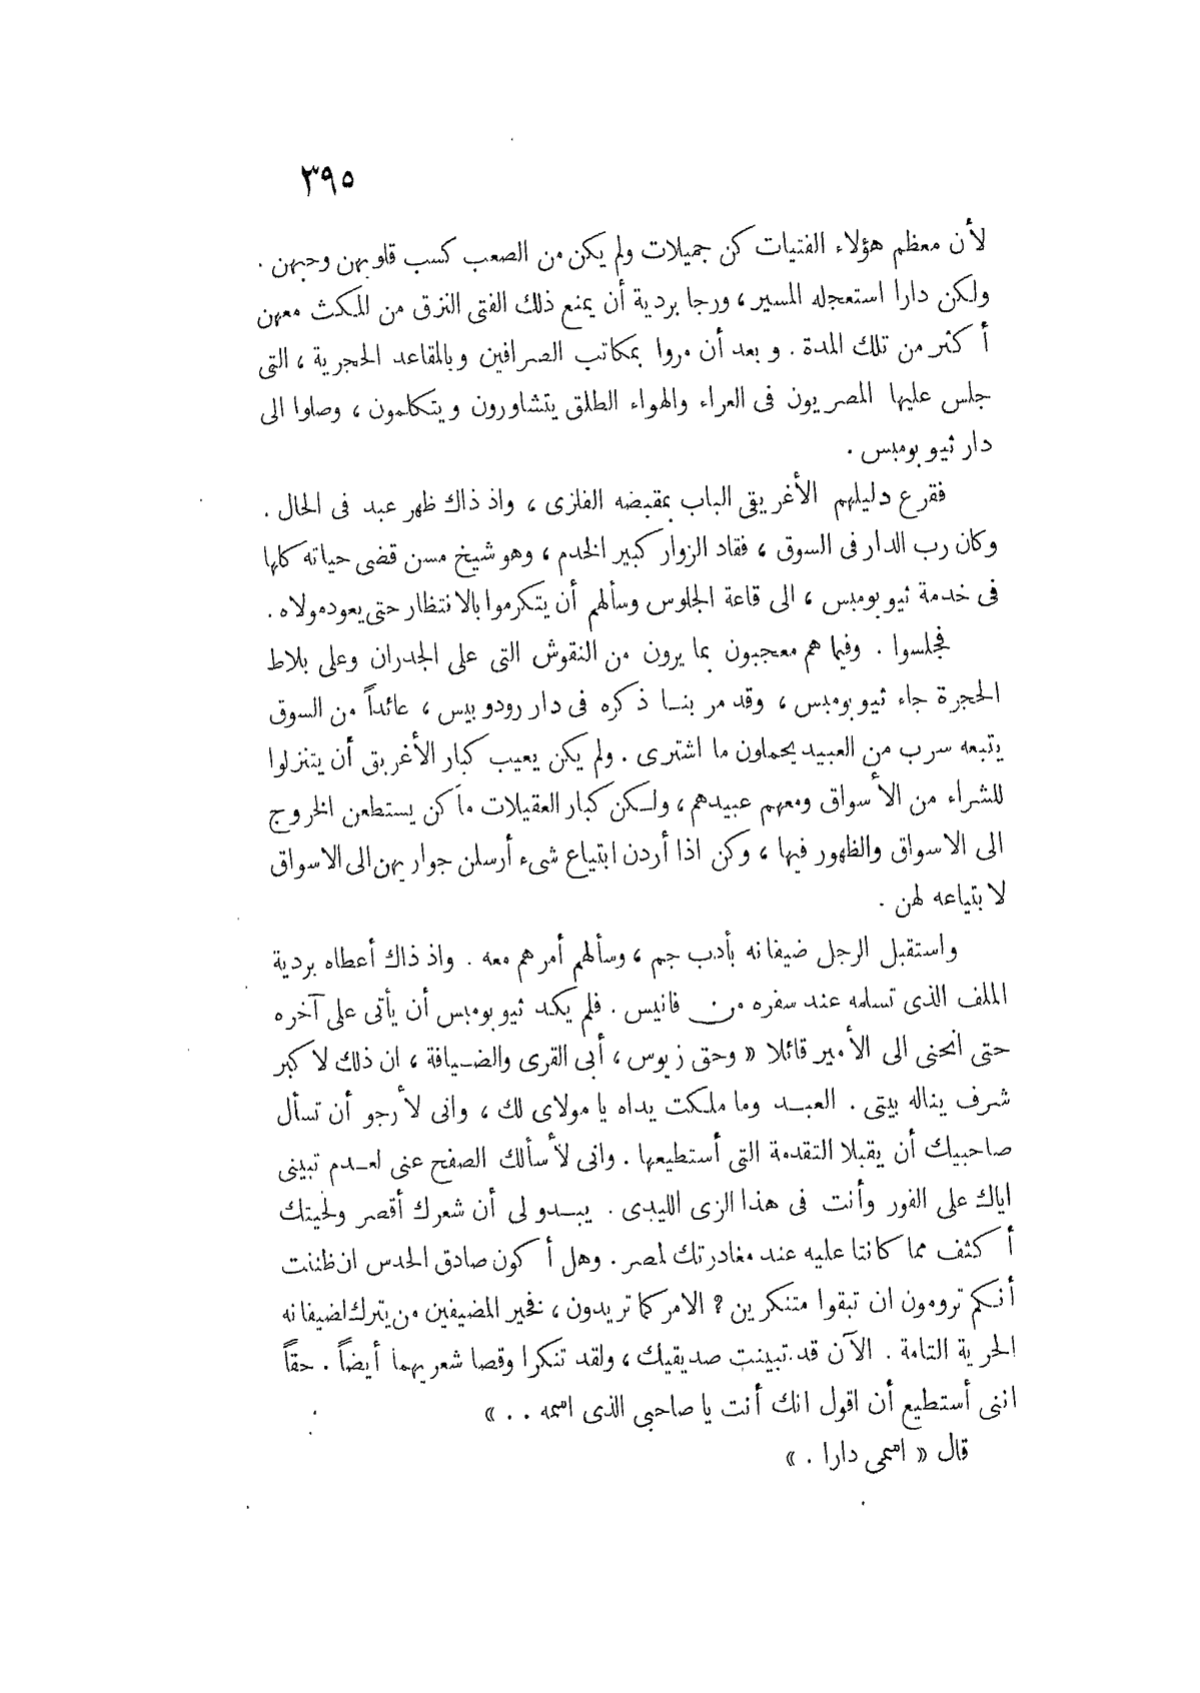 ٣٩٥
لأن معظم هؤلاء الفتيات كن جميلات ولم يكن من الصعب كسب قلوبهن وحبهن .
ولكن دارا استعجله المسير ، ورجا بردية أن يمنع ذلك الفتى النزق من المكث معهن
أكثر من تلك المدة . وبعد أن مروا بمكاتب الصرافين وبالمقاعد الحجرية ، التى
جلس عليها المصريون فى العراء والهواء الطلق يتشاورون ويتكلمون ، وصلوا الى
دار ثيوبومبس .
فقرع دليلهم الأغريقى الباب بمقبضه الفلزى ، واذ ذاك ظهر عبد فى الحال .
وكان رب الدار فى السوق ، فقاد الزوار كبير الخدم ، وهو شيخ مسن قضى حياته كلها
فى خدمة ثيوبومبس ، الى قاعة الجلوس وسألهم أن يتكرموا بالانتظار حتى يعود مولاه .
فجلسوا . وفيما هم معجبون بما يرون من النقوش التى على الجدران وعلى بلاط
الحجرة جاء ثيوبومبس ، وقد مر بنا ذكره فى دار رودوبيس ، عائداً من السوق
يتبعه سرب من العبيد يحملون ما اشترى . ولم يكن يعيب كبار الأغريق أن يتنزلوا
للشراء من الأسواق ومعهم عبيدهم ، ولكن كبار العقيلات ما كن يستطعن الخروج
الى الاسواق والظهور فيها ، وكن اذا أردن ابتياع شىء أرسلن جواريهن الى الاسواق
لابتياعه لهن .
واستقبل الرجل ضيفانه بأدب جم ، وسألهم أمرهم معه . واذ ذاك أعطاه بردية
الملف الذى تسلمه عند سفره من فانيس . فلم يكد ثيوبومبس أن يأتى على آخره
حتى انحنى الى الأمير قائلا « وحق زيوس ، أبى القرى والضيافة ، ان ذلك لاكبر
شرف يناله بيتى . العبد وما ملكت يداه يا مولاى لك ، وانى لأرجو أن تسأل
صاحبيك أن يقبلا التقدمة التى أستطيعها . وانى لأسألك الصفح عنى لعدم تبينى
اياك على الفور وأنت فى هذا الزى الليدى . يبدو لى أن شعرك أقصر ولحيتك
أكثف مما كانتا عليه عند مغادرتك لمصر . وهل أكون صادق الحدس ان ظننت
أنكم ترومون ان تبقوا متنكرين ؟ الامر كما تريدون ، فخير المضيفين من يترك لضيفانه
الحرية التامة . الآن قد تبينت صديقيك ، ولقد تنكرا وقصا شعريهما أيضاً . حقاً
اننى أستطيع أن اقول انك أنت يا صاحبى الذى اسمه . . »
قال « اسمى دارا . »